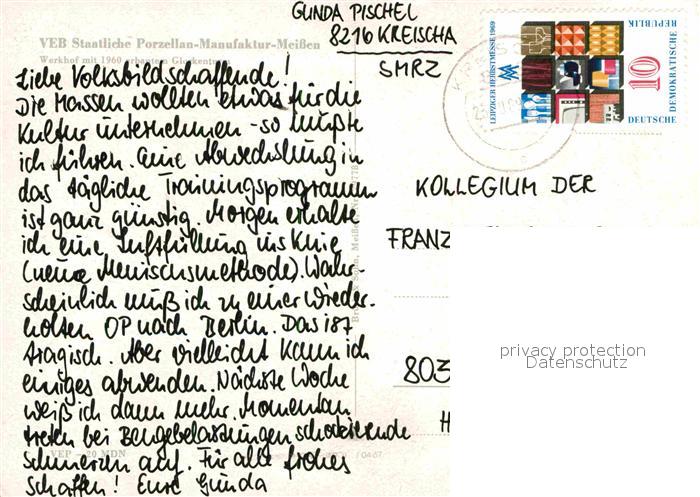 GUNDA PISCHEL
8216 KREISCHA
SMRZ
VEB Staatliche Porzellan-Manufaktur-Meißen
Werkhof mit 1960 erbautem Glockenturm
LEIPZIGER HERBSTMESSE 1969
10
DEUTSCHE DEMOKRATISCHE REPUBLIK
Liebe Volksbildschaffende!
Die Massen wollten etwas für die
Kultur unternehmen - so mußte
ich führen. Eine Abwechslung in
das tägliche Trainingsprogramm
ist ganz günstig. Morgen erhalte
ich eine Luftfüllung ins Knie
(neue Meniscusmethode). Wahr-
scheinlich muß ich zu einer wieder-
holten OP nach Berlin. Das ist
tragisch. Aber vielleicht kann ich
einiges abwenden. Nächste Woche
weiß ich dann mehr. Momentan
treten bei Beugebelastungen
Schmerzen auf. Für alle frohes
Schaffen! Eure Gunda
KOLLEGIUM DER
FRANZ
803
H
VEP - 20 MDN
04 67
privacy protection
Datenschutz